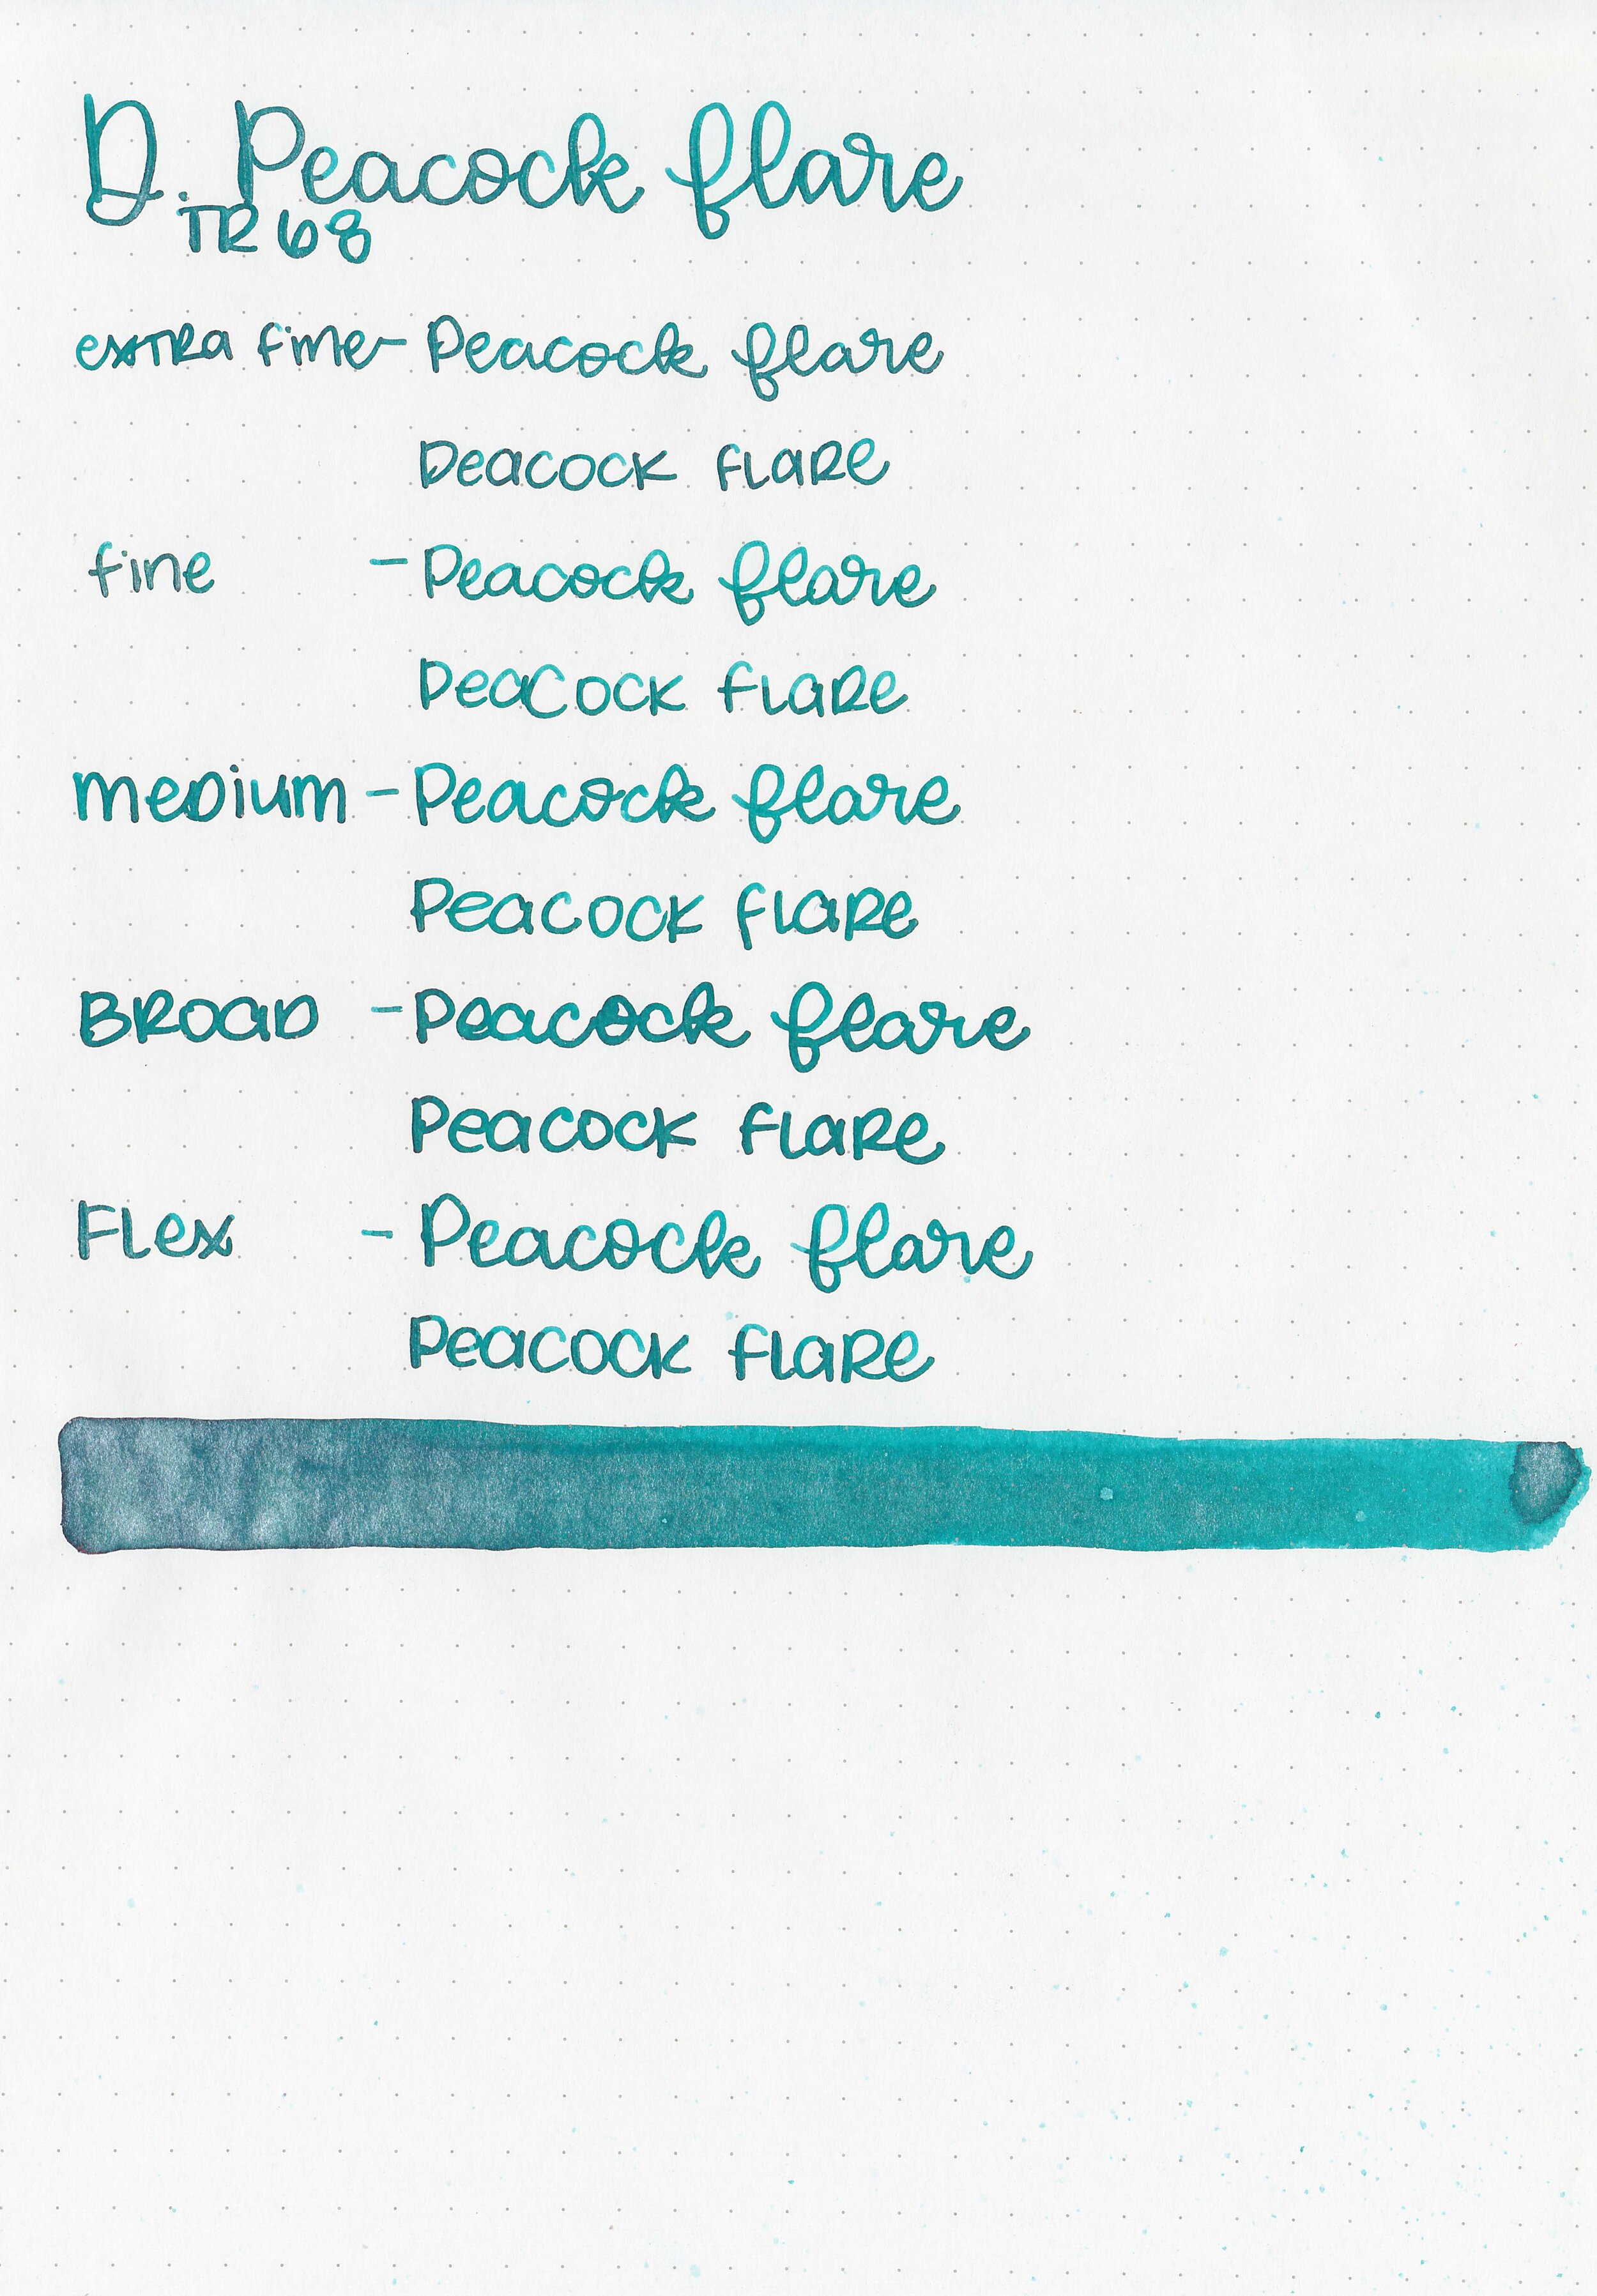 D. Peacock flare
TR 68
extra fine - Peacock flare
Peacock flare
fine - Peacock flare
Peacock flare
medium - Peacock flare
Peacock flare
Broad - Peacock flare
Peacock flare
Flex - Peacock flare
Peacock flare